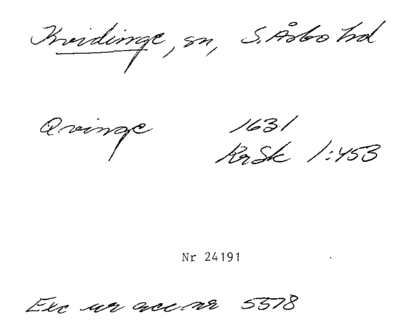 Kvidinge, sn, S. Åsbo hd
Qvinge 1631
RrSk 1:453
Nr 24191
Exc ur acc nr 5578